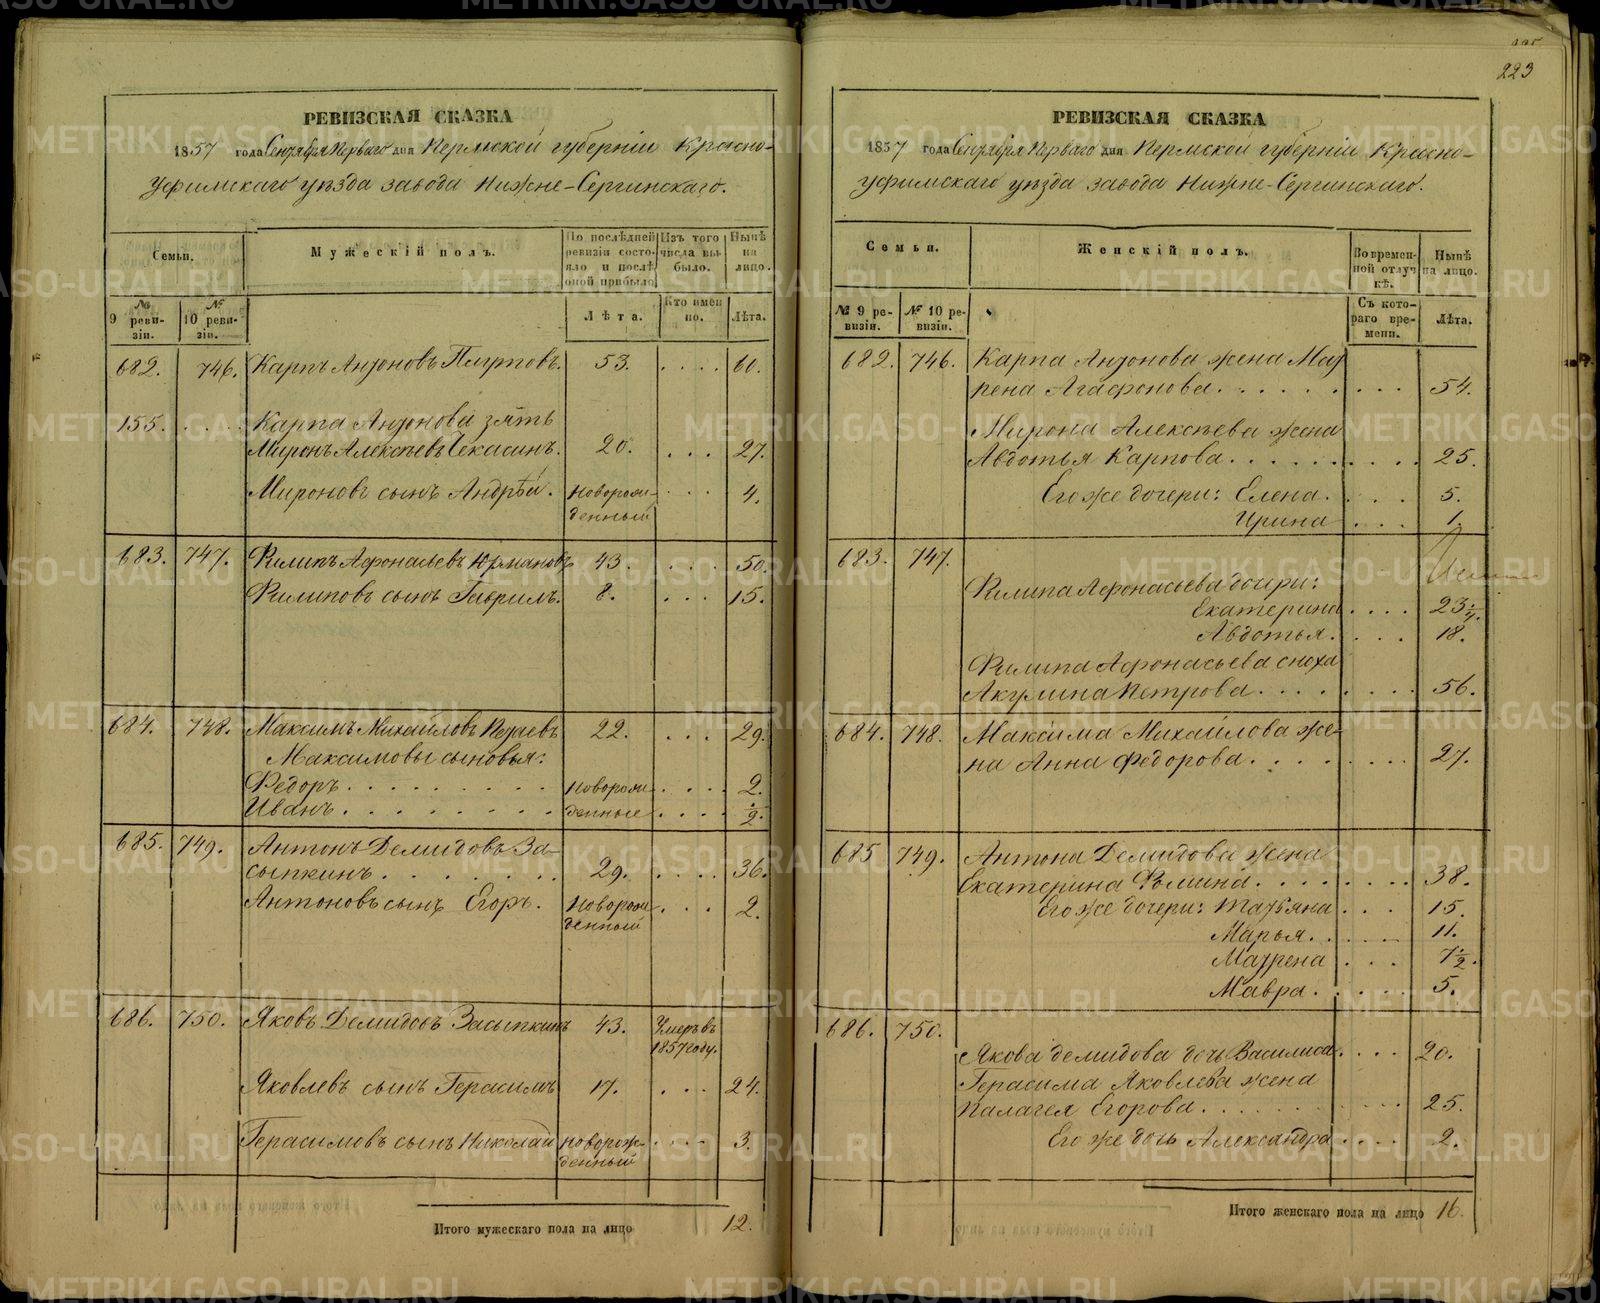 РЕВИЗСКАЯ СКАЗКА
1857 года Сентября Перваго дня Пермской губерніи Красно-
уфимскаго уѣзда завода Нижне-Сергинскаго.
Семьи.
Мужескій полъ.
По послѣдней ревизіи состояло и послѣ оной прибыло
Изъ того числа выбыло.
Нынѣ на лицо.
№ 9 ревизіи.
№ 10 ревизіи.
Лѣта.
Кто именно.
Лѣта.
682. 746. Карпъ Андроновъ 53. . . . . 60.
155. . . . Карпа Андронова зять
Миронъ Алексѣевъ Чекасинъ. 20. . . . 27.
Мироновъ сынъ Андрей. Новорож- . . . 4.
денный
683. 747. Филипъ Афонасьевъ Юрмановъ 43. . . . . 50.
Филиповъ сынъ Гаврилъ. 8. . . . 15.
684. 748. Максимъ Михайловъ 22. . . . 29.
Максимовы сыновья:
Федоръ. . . . . . . . . Новорож- . . . . 2.
Иванъ. . . . . . . . . денные . . . . 1/2.
685. 749. Антонъ Демидовъ За-
сыпкинъ. . . . . . . . 29. . . . . 36.
Антоновъ сынъ Егоръ. Новорож- . . . 2.
денный
686. 750. Яковъ Демидовъ Засыпкинъ 43. Умеръ въ
1857 году.
Яковлевъ сынъ Герасимъ 17. . . . 24.
Герасимовъ сынъ Николай новорож- . . . . 3.
денный
Итого мужескаго пола на лицо 12.
223
РЕВИЗСКАЯ СКАЗКА
1857 года Сентября Перваго дня Пермской губерніи Красно-
уфимскаго уѣзда завода Нижне-Сергинскаго.
Семьи.
Женскій полъ.
Во временной отлучкѣ.
Нынѣ на лицо.
№ 9 ревизіи.
№ 10 ревизіи.
Съ котораго времени.
Лѣта.
682. 746. Карпа Андронова жена Мат
рена Агафонова. . . . . . . . . . 54.
Мирона Алексѣева жена
Авдотья Карпова. . . . . . . . . . 25.
Его же дочери: Елена. . . . . 5.
Ирина . . . . 1.
683. 747.
Филипа Афонасьева дочери:
Екатерина . . . . 23 1/4.
Авдотья. . . . . 18.
Филипа Афонасьева сноха
Акулина Петрова. . . . . . . . . 56.
684. 748. Максима Михайлова же-
на Анна Федорова. . . . . . . . . 27.
685 749. Антона Демидова жена
Екатерина Фомина. . . . . . . . . 38.
Его же дочери: Татьяна . . . 15.
Марья. . . . . . 11.
Матрена . . . 7 1/2.
Мавра. . . . . . 5.
686. 750.
Якова Демидова дочь Василиса . . . . 20.
Герасима Яковлева жена
Палагея Егорова. . . . . . . . . . . 25.
Его же дочь Александра . . . . 2.
Итого женскаго пола на лицо 16.
METRIKI.GASO-URAL.RU